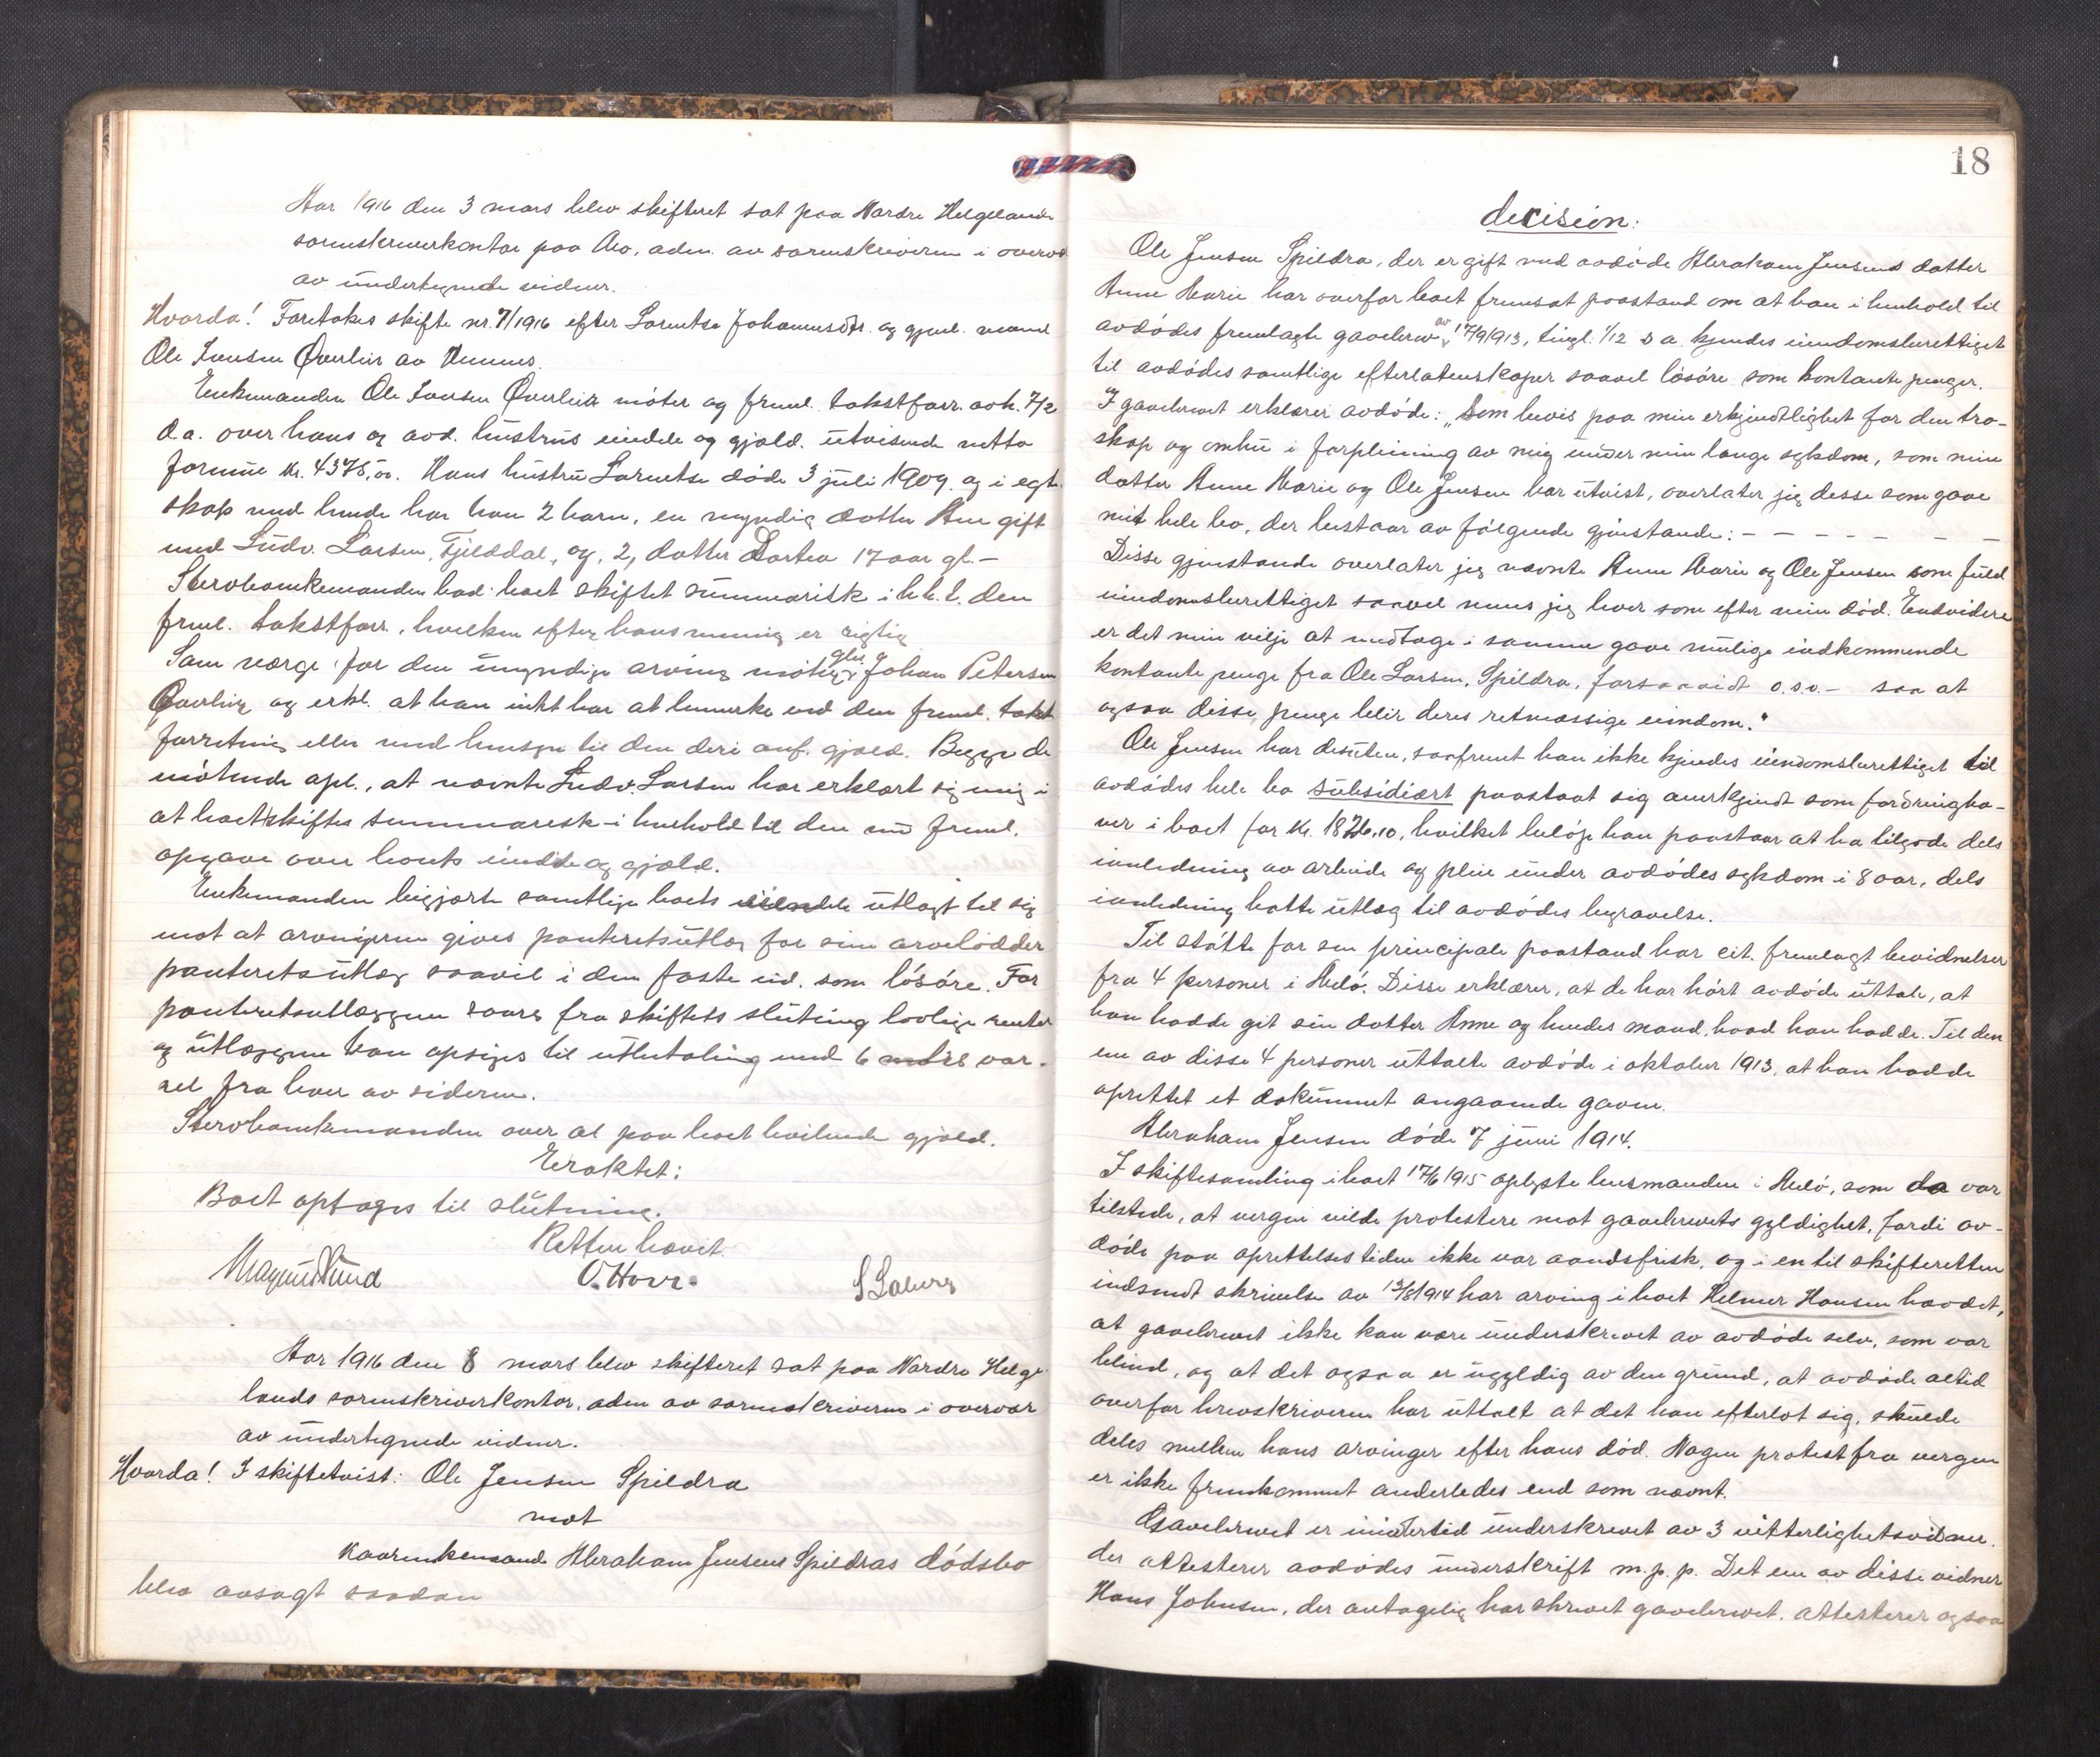 Aar 1916 den 3 mars blev skifteret sat paa Nordre Helgelands
sorenskriverkontor paa Mo, adm. av sorenskriveren i overvær
av undertegnede vidner.
Hvorda! Foretokes skifte nr. 7/1916 efter Lorentse Johannesdtr. og gjenl. mand
Ole Iversen Øverlier av Hemnes.
Enkemanden Ole Iversen Øverlier møter og freml. takstforr. avh. 7/2
d.a. over hans og avd. hustrus eiendele og gjæld utvisende netto
formue kr. 4375,00. Hans hustru Lorentse døde 3 juli 1909 og i egte-
skap med hende har han 2 barn, en myndig datter Ane gift
med Ludv. Larsen, Fjelddal, og, 2, datter Dortea 17 aar gl. –
Stervboenkemanden bad boet skiftet summarisk i h. h. t. den
freml. takstforr., hvilken efter hans mening er rigtig
Som verge for den umyndige arving møter gbr. Johan Petersen
Øverlier og erkl. at han intet har at bemerke ved den freml. takst
forretning eller med hensyn til den deri anf. gjæld. Begge de
møtende opl., at nævnte Ludv. Larsen har erklært sig enig i
at boet skiftes summarisk i henhold til den nu freml.
opgave over boets eiendele og gjæld.
Enkemanden begjærte samtlige boets eiendele utlagt til sig
mot at arvingerne gives panteretsutlæg for sine arvelodder
panteretsutlæg saavel i den faste eid. som løsøre. For
panteretsutlæggene svares fra skiftets slutning lovlige renter
og utlæggene kan opsiges til utbetaling med 6 mdrs var-
sel fra hver av siderne.
Stervboenkemanden over al paa boet hvilende gjæld.
Eraktet:
Boet optages til slutning.
Retten hævet.
Magnus Lund O. Hovr. S Laberg
Aar 1916 den 8 mars blev skifteret sat paa Nordre Helge
lands sorenskriverkontor, adm av sorenskriveren i overvær
av undertegnede vidner.
Hvorda! I skiftetvist: Ole Jensen Spildra
mot
kaarenkemand Abraham Jensens Spildras dødsbo
blev avsagt saadan
18
decision:
Ole Jensen Spildra, der er gift med avdøde Abraham Jensens datter
Anne Marie har overfor boet fremsat paastand om at han i henhold til
avdødes fremlagte gavebrev av 17/9 1913, tingl. 1/12 s a. kjendes eiendomsberettiget
til avdødes samtlige efterlatenskaper saavel løsøre som kontante penger.
I gavebrevet erklærer avdøde: „Som bevis paa min erkjendtlighet for den tro-
skap og omhu i forpleining av mig under min lange sykdom, som min
datter Anne Marie og Ole Jensen har utvist, overlater jeg desse som gave
mit hele bo, der bestaar av følgende gjenstande: – – – – – – –
Disse gjenstande overlater jeg nævnte Anne Marie og Ole Jensen som fuld
eiendomsberettiget saavel mens jeg lever som efter min død. Endvidere
er det min vilje at medtage i samme gave mulige indkommende
kontante penge fra Ole Larsen, Spildra, forsaavidt o.s.v. – saa at
ogsaa disse penge blir deres retmæssige eiendom."
Ole Jensen har desuten, saafremt han ikke kjendes eiendomsberettiget til
avdødes hele bo subsidiært paastaat sig anerkjendt som fordringha-
ver i boet for kr. 1826,10, hvilket beløp han paastaar at ha tilgode dels
i anledning av arbeide og pleie under avdødes sykdom i 8 aar, dels
i anledning hatte utlæg til avdødes begravelse.
Til støtte for sin principale paastand har cit. fremlagt bevidnelser
fra 4 personer i Melø. Disse erklærer, at de har hørt avdøde uttale, at
han hadde git sin datter Anne og hendes mand, hvad han hadde. Til den
ene av disse 4 personer uttalte avdøde i oktober 1913, at han hadde
oprettet et dokument angaaende gaven.
Abraham Jensen døde 7 juni 1914.
I skiftesamling i boet 17/6 1915 oplyste lensmanden i Melø, som da var
tilstede, at vergen vilde protestere mot gavebrevets gyldighet, fordi av-
døde paa oprettelsestiden ikke var aandsfrisk, og i en til skifteretten
indsendt skrivelse av 13/8 1914 har arving i boet Helmer Hansen hævdet,
at gavebrevet ikke kan være underskrevet av avdøde selv, som var
blind, og at det ogsaa er ugyldig av den grund, at avdøde altid
overfor brevskriveren har uttalt at det han efterlot sig, skulde
deles mellem hans arvinger efter hans død. Nogen protest fra vergen
er ikke fremkommet anderledes end som nævnt.
Gavebrevet er imidlertid underskrevet av 3 vitterlighetsvidner.
der attesterer avdødes underskrift m. p. p. Det ene av disse vidner
Hans Johnsen, der antagelig har skrevet gavebrevet, attesterer ogsaa